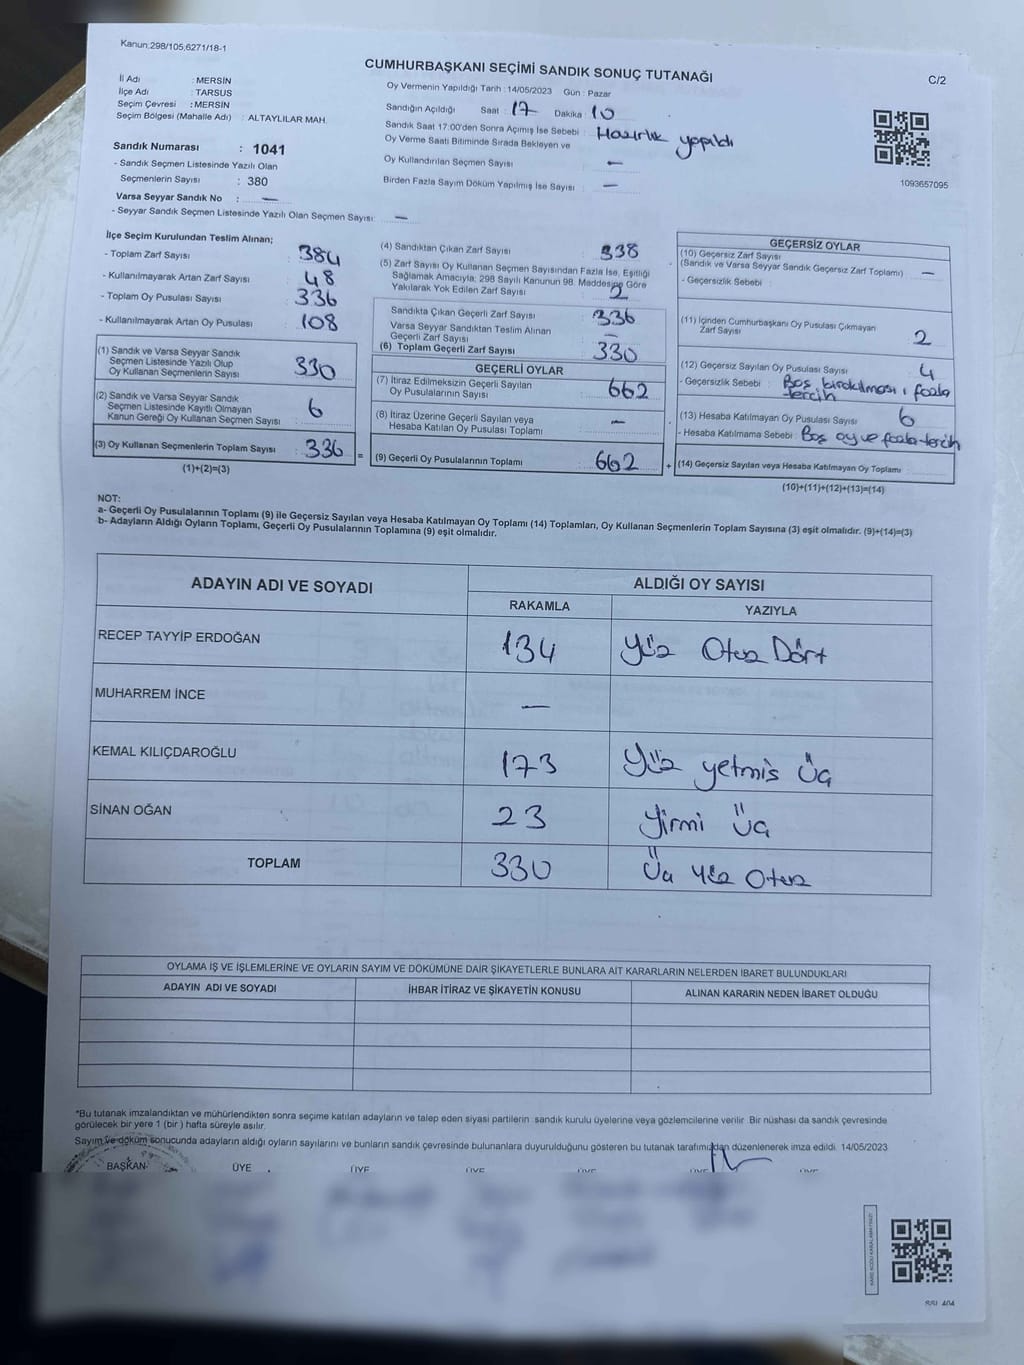 Kanun:298/105,6271/18-1
CUMHURBAŞKANI SEÇİMİ SANDIK SONUÇ TUTANAĞI
C/2
İl Adı : MERSİN
İlçe Adı : TARSUS
Seçim Çevresi : MERSİN
Seçim Bölgesi (Mahalle Adı) : ALTAYLILAR MAH.
Oy Vermenin Yapıldığı Tarih : 14/05/2023 Gün : Pazar
Sandığın Açıldığı Saat : 17 Dakika : 10
Sandık Saat 17:00'den Sonra Açımış İse Sebebi : Hazırlık yapıldı
Oy Verme Saati Bitiminde Sırada Bekleyen ve
Oy Kullandırılan Seçmen Sayısı : —
Birden Fazla Sayım Döküm Yapılmış İse Sayısı : —
1093657095
Sandık Numarası : 1041
- Sandık Seçmen Listesinde Yazılı Olan
Seçmenlerin Sayısı : 380
Varsa Seyyar Sandık No : —
- Seyyar Sandık Seçmen Listesinde Yazılı Olan Seçmen Sayısı: —
İlçe Seçim Kurulundan Teslim Alınan;
- Toplam Zarf Sayısı : 384
- Kullanılmayarak Artan Zarf Sayısı : 48
- Toplam Oy Pusulası Sayısı : 336
- Kullanılmayarak Artan Oy Pusulası : 108
(1) Sandık ve Varsa Seyyar Sandık
Seçmen Listesinde Yazılı Olup
Oy Kullanan Seçmenlerin Sayısı : 330
(2) Sandık ve Varsa Seyyar Sandık
Seçmen Listesinde Kayıtlı Olmayan
Kanun Gereği Oy Kullanan Seçmen Sayısı : 6
(3) Oy Kullanan Seçmenlerin Toplam Sayısı : 336
(1)+(2)=(3)
=
(4) Sandıktan Çıkan Zarf Sayısı : 338
(5) Zarf Sayısı Oy Kullanan Seçmen Sayısından Fazla İse, Eşitliği
Sağlamak Amacıyla; 298 Sayılı Kanunun 98. Maddesine Göre
Yakılarak Yok Edilen Zarf Sayısı : 2
Sandıkta Çıkan Geçerli Zarf Sayısı : 336
Varsa Seyyar Sandıktan Teslim Alınan
Geçerli Zarf Sayısı : —
(6) Toplam Geçerli Zarf Sayısı : 330
GEÇERLİ OYLAR
(7) İtiraz Edilmeksizin Geçerli Sayılan
Oy Pusulalarının Sayısı : 662
(8) İtiraz Üzerine Geçerli Sayılan veya
Hesaba Katılan Oy Pusulası Toplamı : —
(9) Geçerli Oy Pusulalarının Toplamı : 662
+
GEÇERSİZ OYLAR
(10) Geçersiz Zarf Sayısı
(Sandık ve Varsa Seyyar Sandık Geçersiz Zarf Toplamı) : —
- Geçersizlik Sebebi :
(11) İçinden Cumhurbaşkanı Oy Pusulası Çıkmayan
Zarf Sayısı : 2
(12) Geçersiz Sayılan Oy Pusulası Sayısı : 4
- Geçersizlik Sebebi : Boş bırakılması, fazla
tercih
(13) Hesaba Katılmayan Oy Pusulası Sayısı : 6
- Hesaba Katılmama Sebebi : Boş oy ve fazla tercih
(14) Geçersiz Sayılan veya Hesaba Katılmayan Oy Toplamı
(10)+(11)+(12)+(13)=(14)
NOT:
a- Geçerli Oy Pusulalarının Toplamı (9) ile Geçersiz Sayılan veya Hesaba Katılmayan Oy Toplamı (14) Toplamları, Oy Kullanan Seçmenlerin Toplam Sayısına (3) eşit olmalıdır. (9)+(14)=(3)
b- Adayların Aldığı Oyların Toplamı, Geçerli Oy Pusulalarının Toplamına (9) eşit olmalıdır.
ADAYIN ADI VE SOYADI
ALDIĞI OY SAYISI
RAKAMLA YAZIYLA
RECEP TAYYİP ERDOĞAN 134 Yüz Otuz Dört
MUHARREM İNCE —
KEMAL KILIÇDAROĞLU 173 Yüz yetmis Üç
SİNAN OĞAN 23 Yirmi Üç
TOPLAM 330 Üç Yüz Otuz
OYLAMA İŞ VE İŞLEMLERİNE VE OYLARIN SAYIM VE DÖKÜMÜNE DAİR ŞİKAYETLERLE BUNLARA AİT KARARLARIN NELERDEN İBARET BULUNDUKLARI
ADAYIN ADI VE SOYADI İHBAR İTİRAZ VE ŞİKAYETİN KONUSU ALINAN KARARIN NEDEN İBARET OLDUĞU
*Bu tutanak imzalandıktan ve mühürlendikten sonra seçime katılan adayların ve talep eden siyasi partilerin sandık kurulu üyelerine veya gözlemcilerine verilir. Bir nüshası da sandık çevresinde
görülecek bir yere 1 (bir ) hafta süreyle asılır.
Sayım ve döküm sonucunda adayların aldığı oyların sayılarını ve bunların sandık çevresinde bulunanlara duyurulduğunu gösteren bu tutanak tarafımızdan düzenlenerek imza edildi. 14/05/2023
BAŞKAN ÜYE ÜYE ÜYE ÜYE ÜYE ÜYE